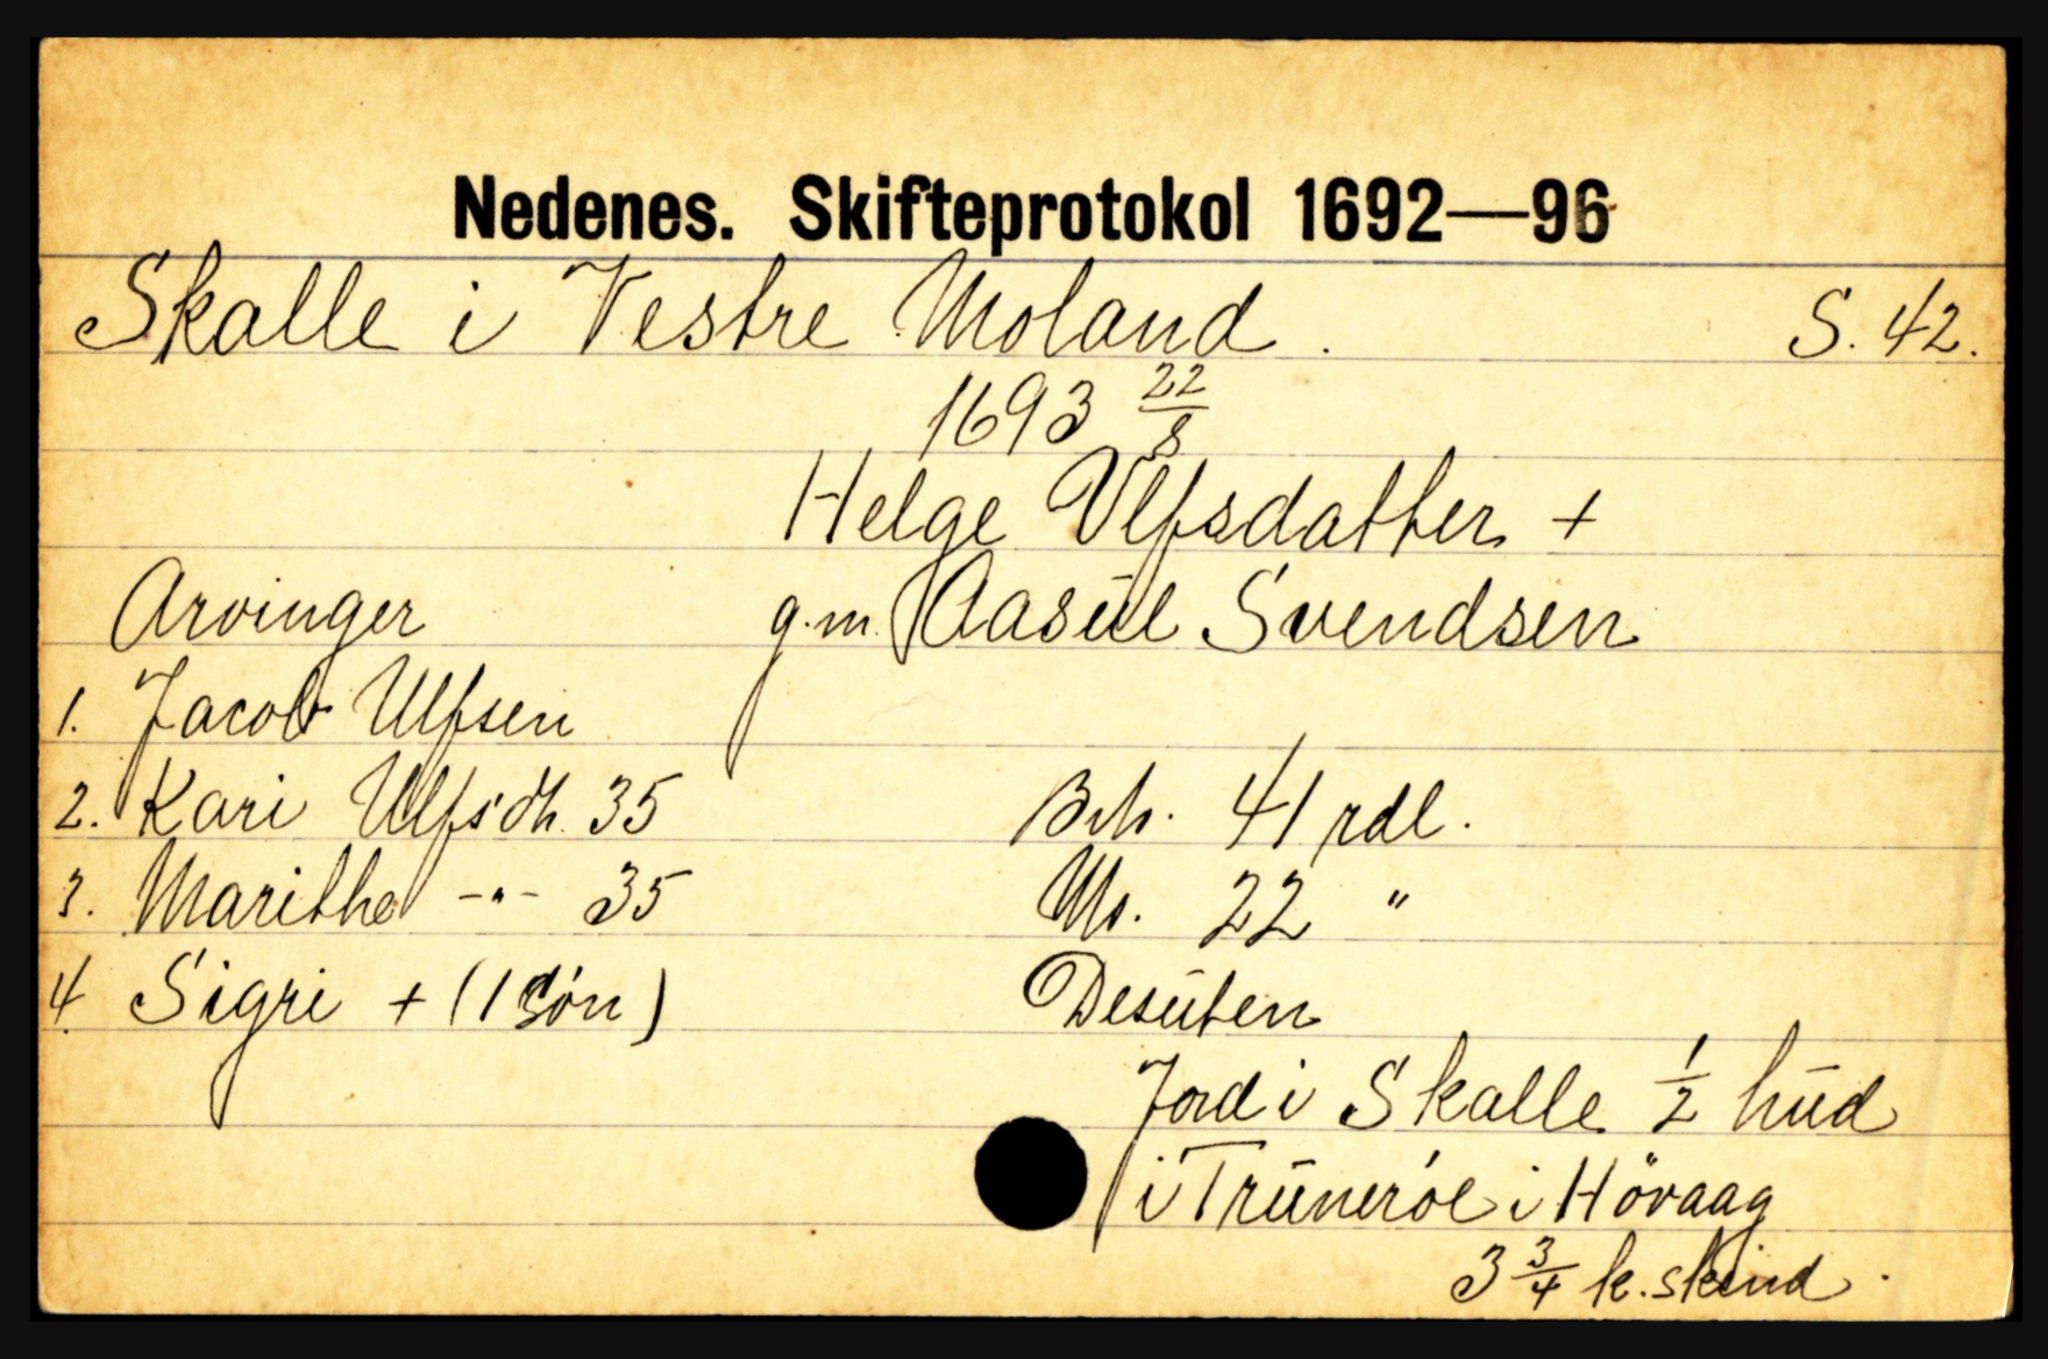 Nedenes. Skifteprotokol 1692—96
Skalle i Vestre Moland. S. 42.
1693 22/8
Helge Ulfsdatter +
Arvinger g.m. Aasül Svendsen
1. Jacob Ulfsen
2. Kari Ulfsdtr. 35 Brt. 41 rdl.
3. Marithe -"- 35 Ns. 22 "
4. Sigri + (1 sön) Desüten
Jord i Skalle 1/2 hüd
i Trüneröe i Hövaag
3 3/4 k.skind.